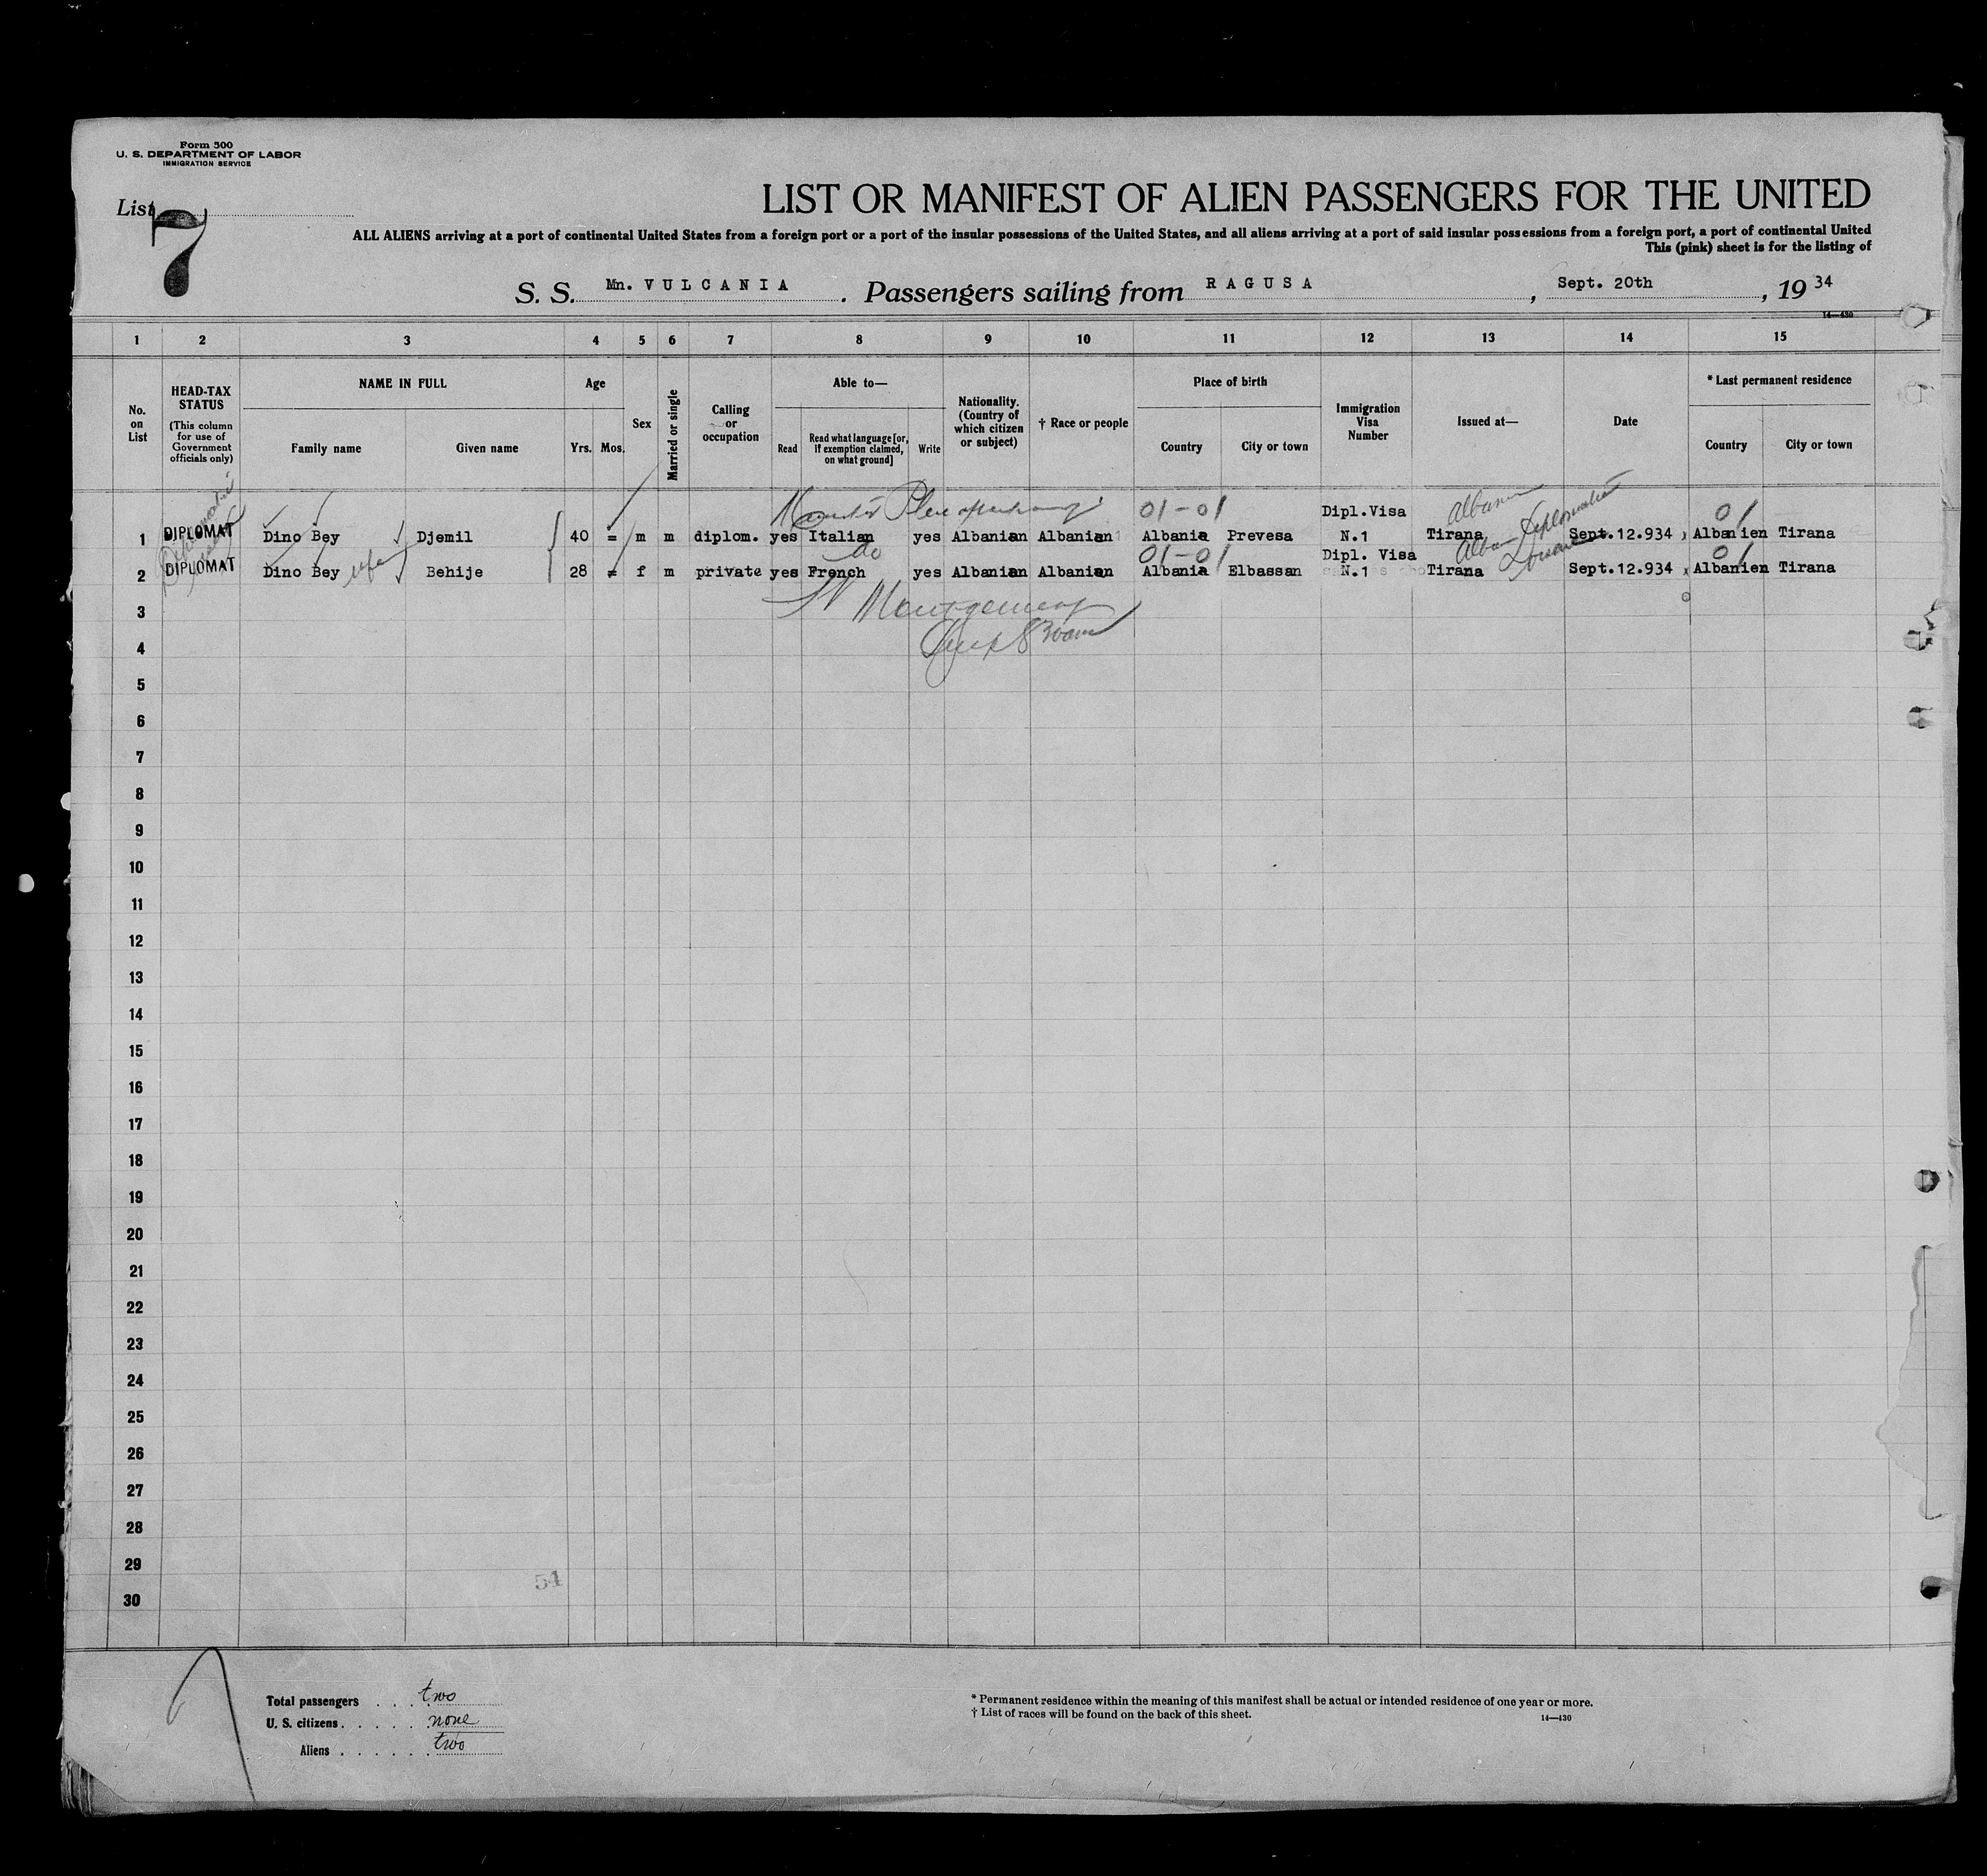 Form 500
U. S. DEPARTMENT OF LABOR
IMMIGRATION SERVICE
List 7
LIST OR MANIFEST OF ALIEN PASSENGERS FOR THE UNITED
ALL ALIENS arriving at a port of continental United States from a foreign port or a port of the insular possessions of the United States, and all aliens arriving at a port of said insular possessions from a foreign port, a port of continental United
This (pink) sheet is for the listing of
S. S. Mn. VULCANIA. Passengers sailing from RAGUSA, Sept. 20th, 1934
14—430
1 2 3 4 5 6 7 8 9 10 11 12 13 14 15
No. on List
HEAD-TAX STATUS
(This column for use of Government officials only)
NAME IN FULL
Family name
Given name
Age
Yrs. Mos.
Sex
Married or single
Calling or occupation
Able to—
Read
Read what language [or, if exemption claimed, on what ground]
Write
Nationality. (Country of which citizen or subject)
† Race or people
Place of birth
Country
City or town
Immigration Visa Number
Issued at—
Date
* Last permanent residence
Country
City or town
01-01 Dipl.Visa 01
1 DIPLOMAT Dino Bey Djemil 40 = m m diplom. yes Italian yes Albanian Albanian Albania Prevesa N.1 Tirana Sept.12.934 Albanien Tirana
do 01-01 Dipl. Visa 01
2 DIPLOMAT Dino Bey wife Behije 28 = f m private yes French yes Albanian Albanian Albania Elbassan N.1 Tirana Sept.12.934 Albanien Tirana
3 Montgomery
4
5
6
7
8
9
10
11
12
13
14
15
16
17
18
19
20
21
22
23
24
25
26
27
28
29
30
54
Total passengers . . . . two
U. S. citizens . . . . . none
Aliens . . . . . . two
* Permanent residence within the meaning of this manifest shall be actual or intended residence of one year or more.
† List of races will be found on the back of this sheet.
14—430